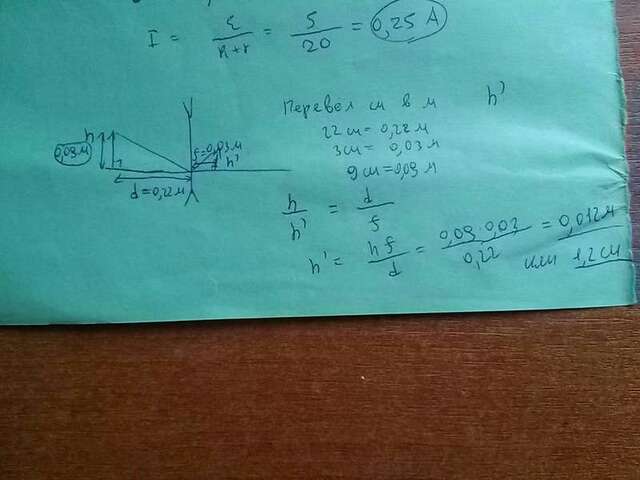 I = ℰ/(R+r) = 5/20 = 0,25 А
Перевел см в м h'
22 см = 0,22 м
3 см = 0,03 м
9 см = 0,09 м
h
0,09 м
f=0,03 м
h'
d = 0,22 м
h/h' = d/f
h' = hf/d = 0,09·0,03/0,22 = 0,012 м
или 1,2 см